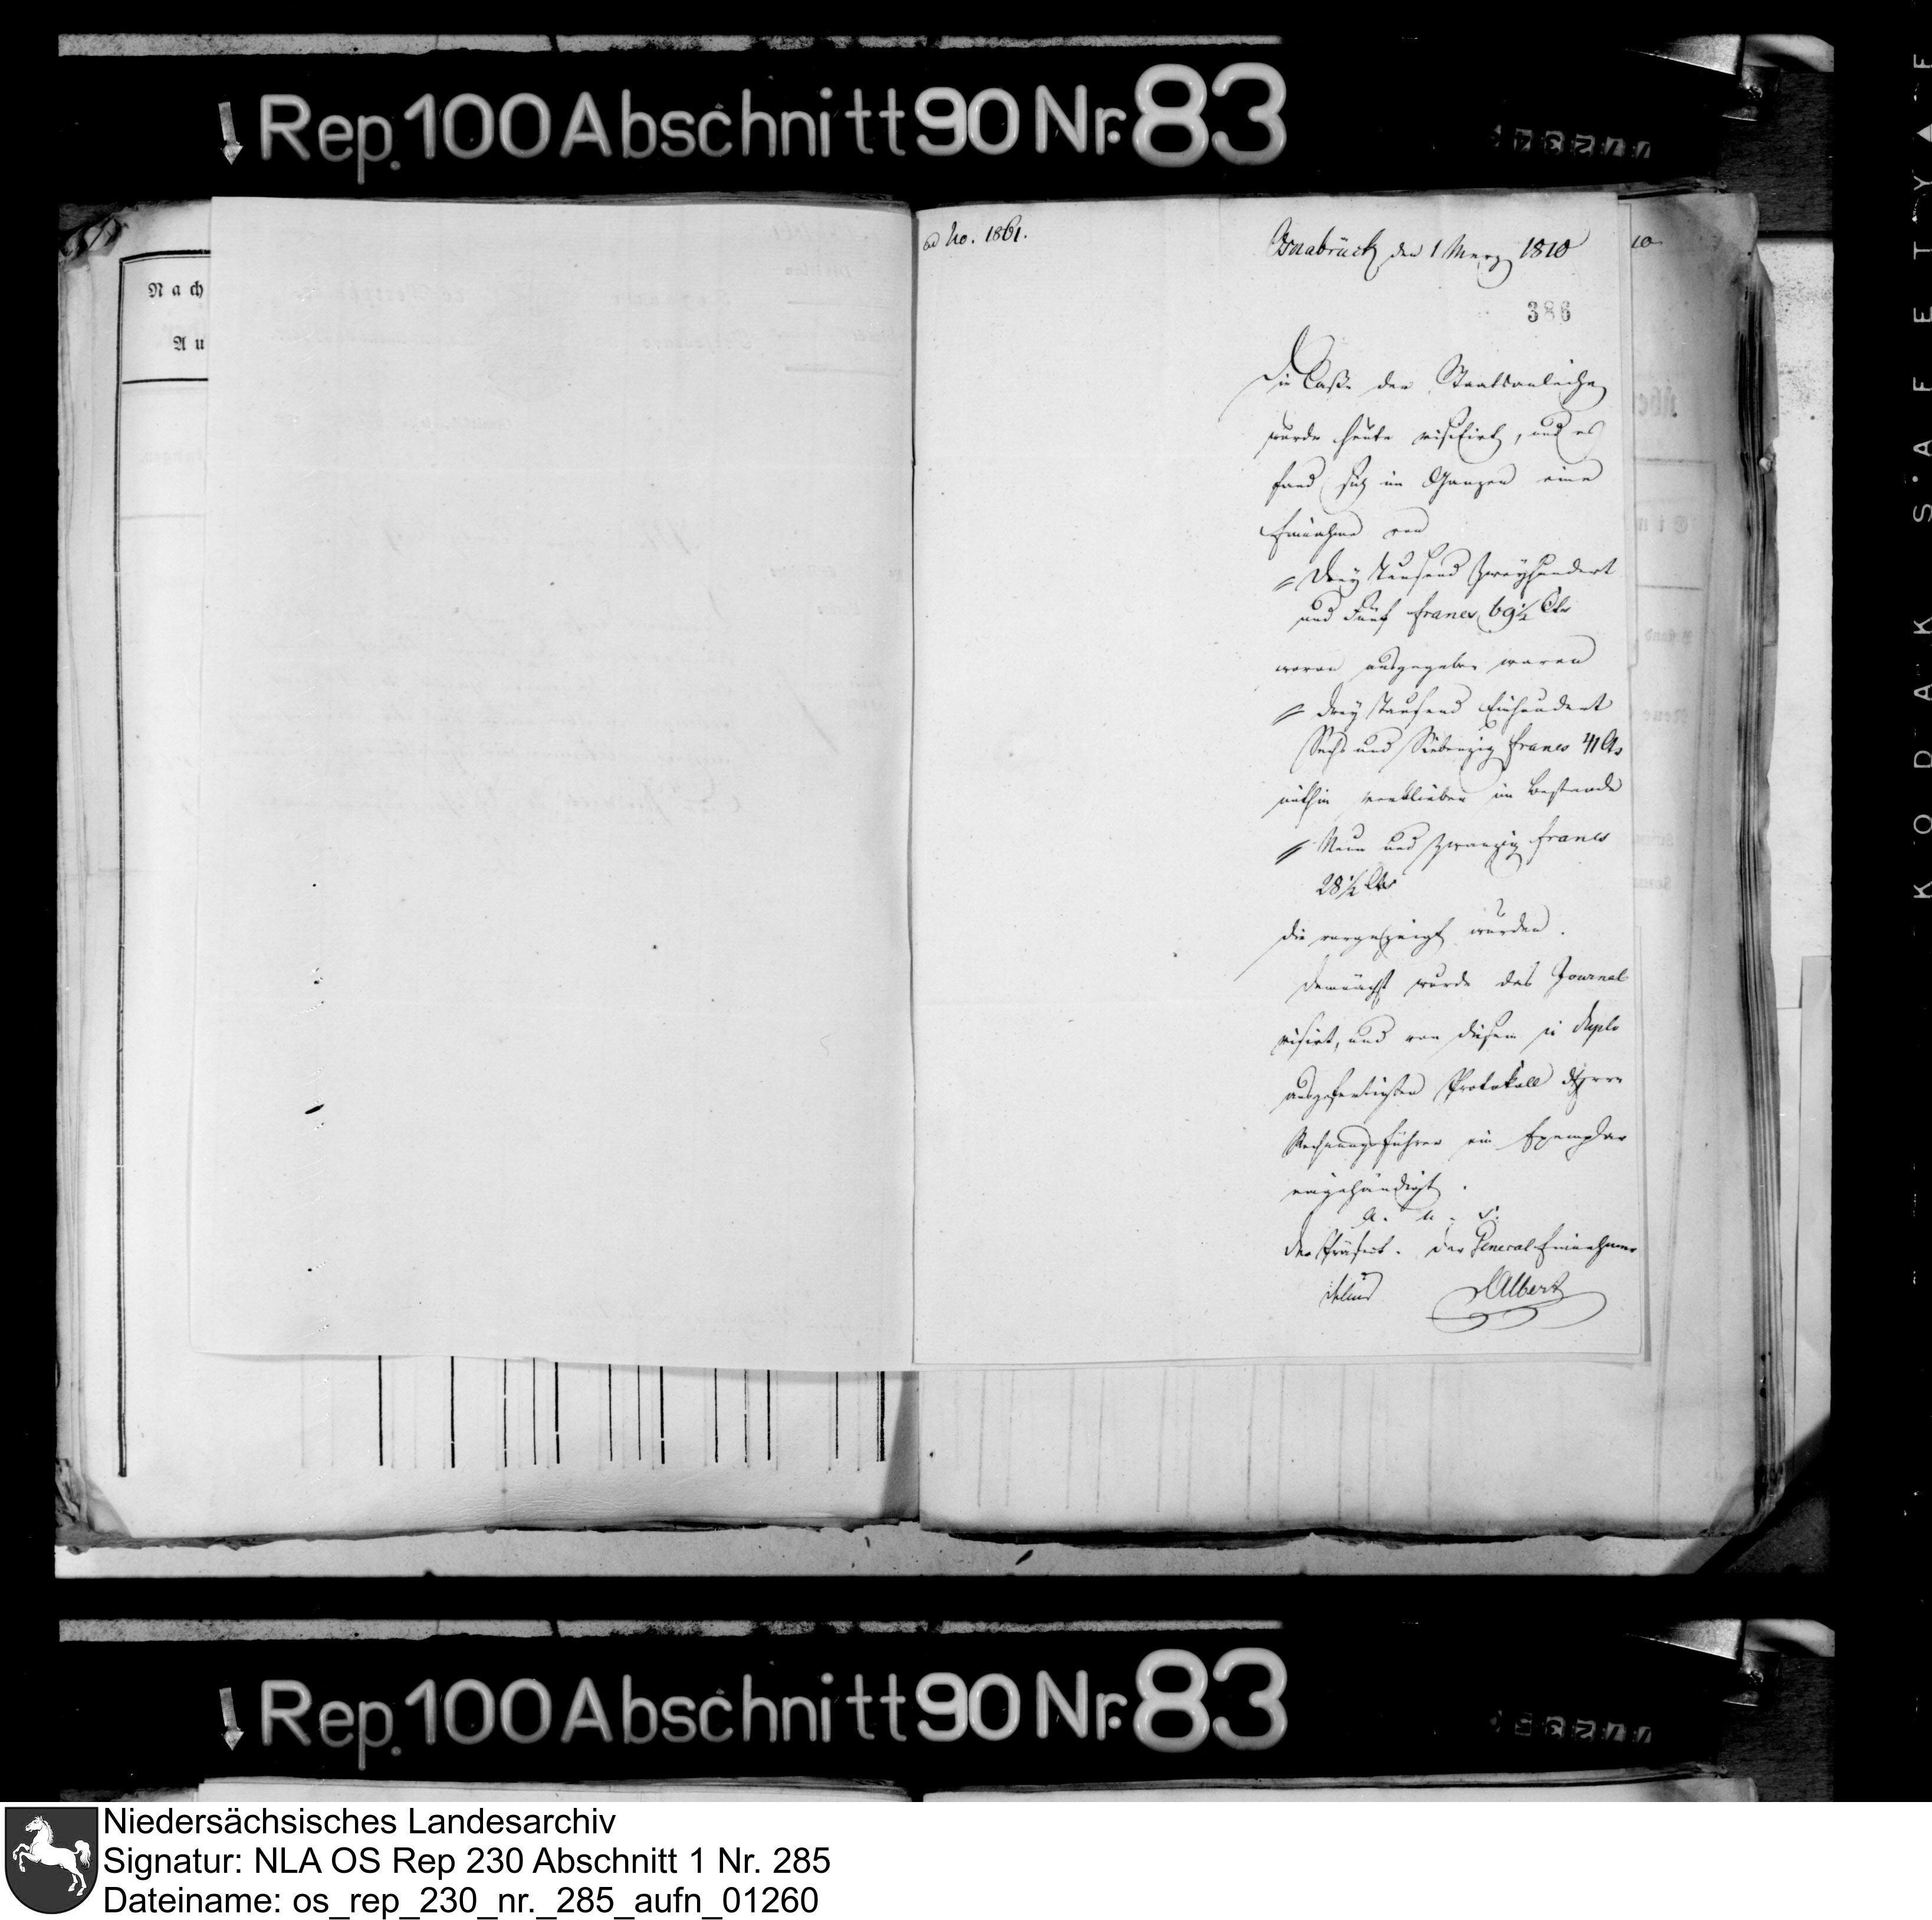 Rep. 100 Abschnitt 90 Nr. 83
Nach
Au
ad No. 1861.
Osnabrück den 1 Merz 1810
10
386
Die Casse der Staatsanleihe
wurde heute visitirt, und es
fand sich im Ganzen eine
Einnahme von
Drey tausend Zweyhundert
und Fünf francs 69½ Cts
wovon ausgegeben waren
Drey tausend Einhundert
Sechs und Siebenzig francs 41 Cts
mithin verblieben im Bestande
Neun und Zwanzig francs
28½ Cts
die vorgezeigt wurden.
Demnächst wurde das Journal
visirt, und von diesem in duplo
ausgefertigten Protokoll
Rechnungsführer ein Exemplar
eingehändigt.
a. u. s.
Der Präfect. Der General Einnehmer
Albert
Rep. 100 Abschnitt 90 Nr. 83
KODAK S'AFETY
Niedersächsisches Landesarchiv
Signatur: NLA OS Rep 230 Abschnitt 1 Nr. 285
Dateiname: os_rep_230_nr._285_aufn_01260